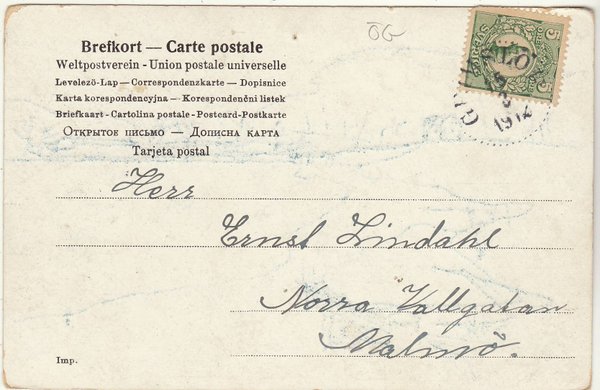 ÖG
Brefkort — Carte postale
Weltpostverein - Union postale universelle
Levelező-Lap — Correspondenzkarte — Dopisnice
Karta korespondencyjna — Korespondenční listek
Briefkaart - Cartolina postale - Postcard-Postkarte
Открытое письмо — Дописна карта
Tarjeta postal
SVERIGE
5
5
1912
Herr
Ernst Lindahl
Norra Vallgatan
Malmö.
Imp.